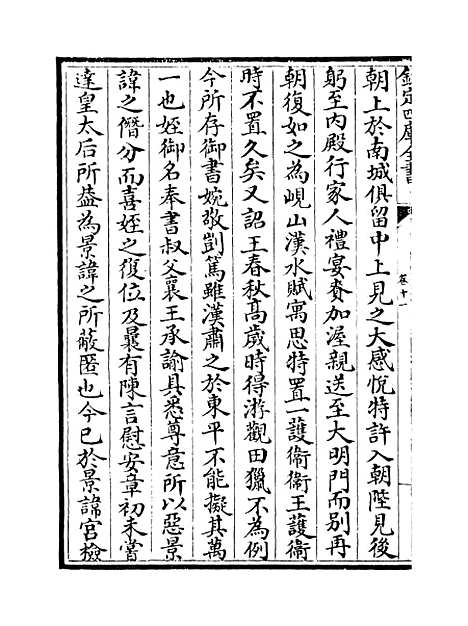 欽定四庫全書
卷十一
朝上於南城俱留中上見之大感悅特許入朝陛見後
躬至内殿行家人禮宴賚加渥親送至大明門而别再
朝復如之為峴山漢水賦寓思特置一護衞衞王護衞
時不置久矣又詔王春秋髙歲時得游觀田獵不為例
今所存御書婉敬剴篤雖漢肅之於東平不能擬其萬
一也姪御名奉書叔父襄王承諭具悉尊意所以惡景
諱之僭分而喜姪之復位及曩有陳言慰安章初未嘗
達皇太后所葢為景諱之所蔽匿也今已於景諱宫檢